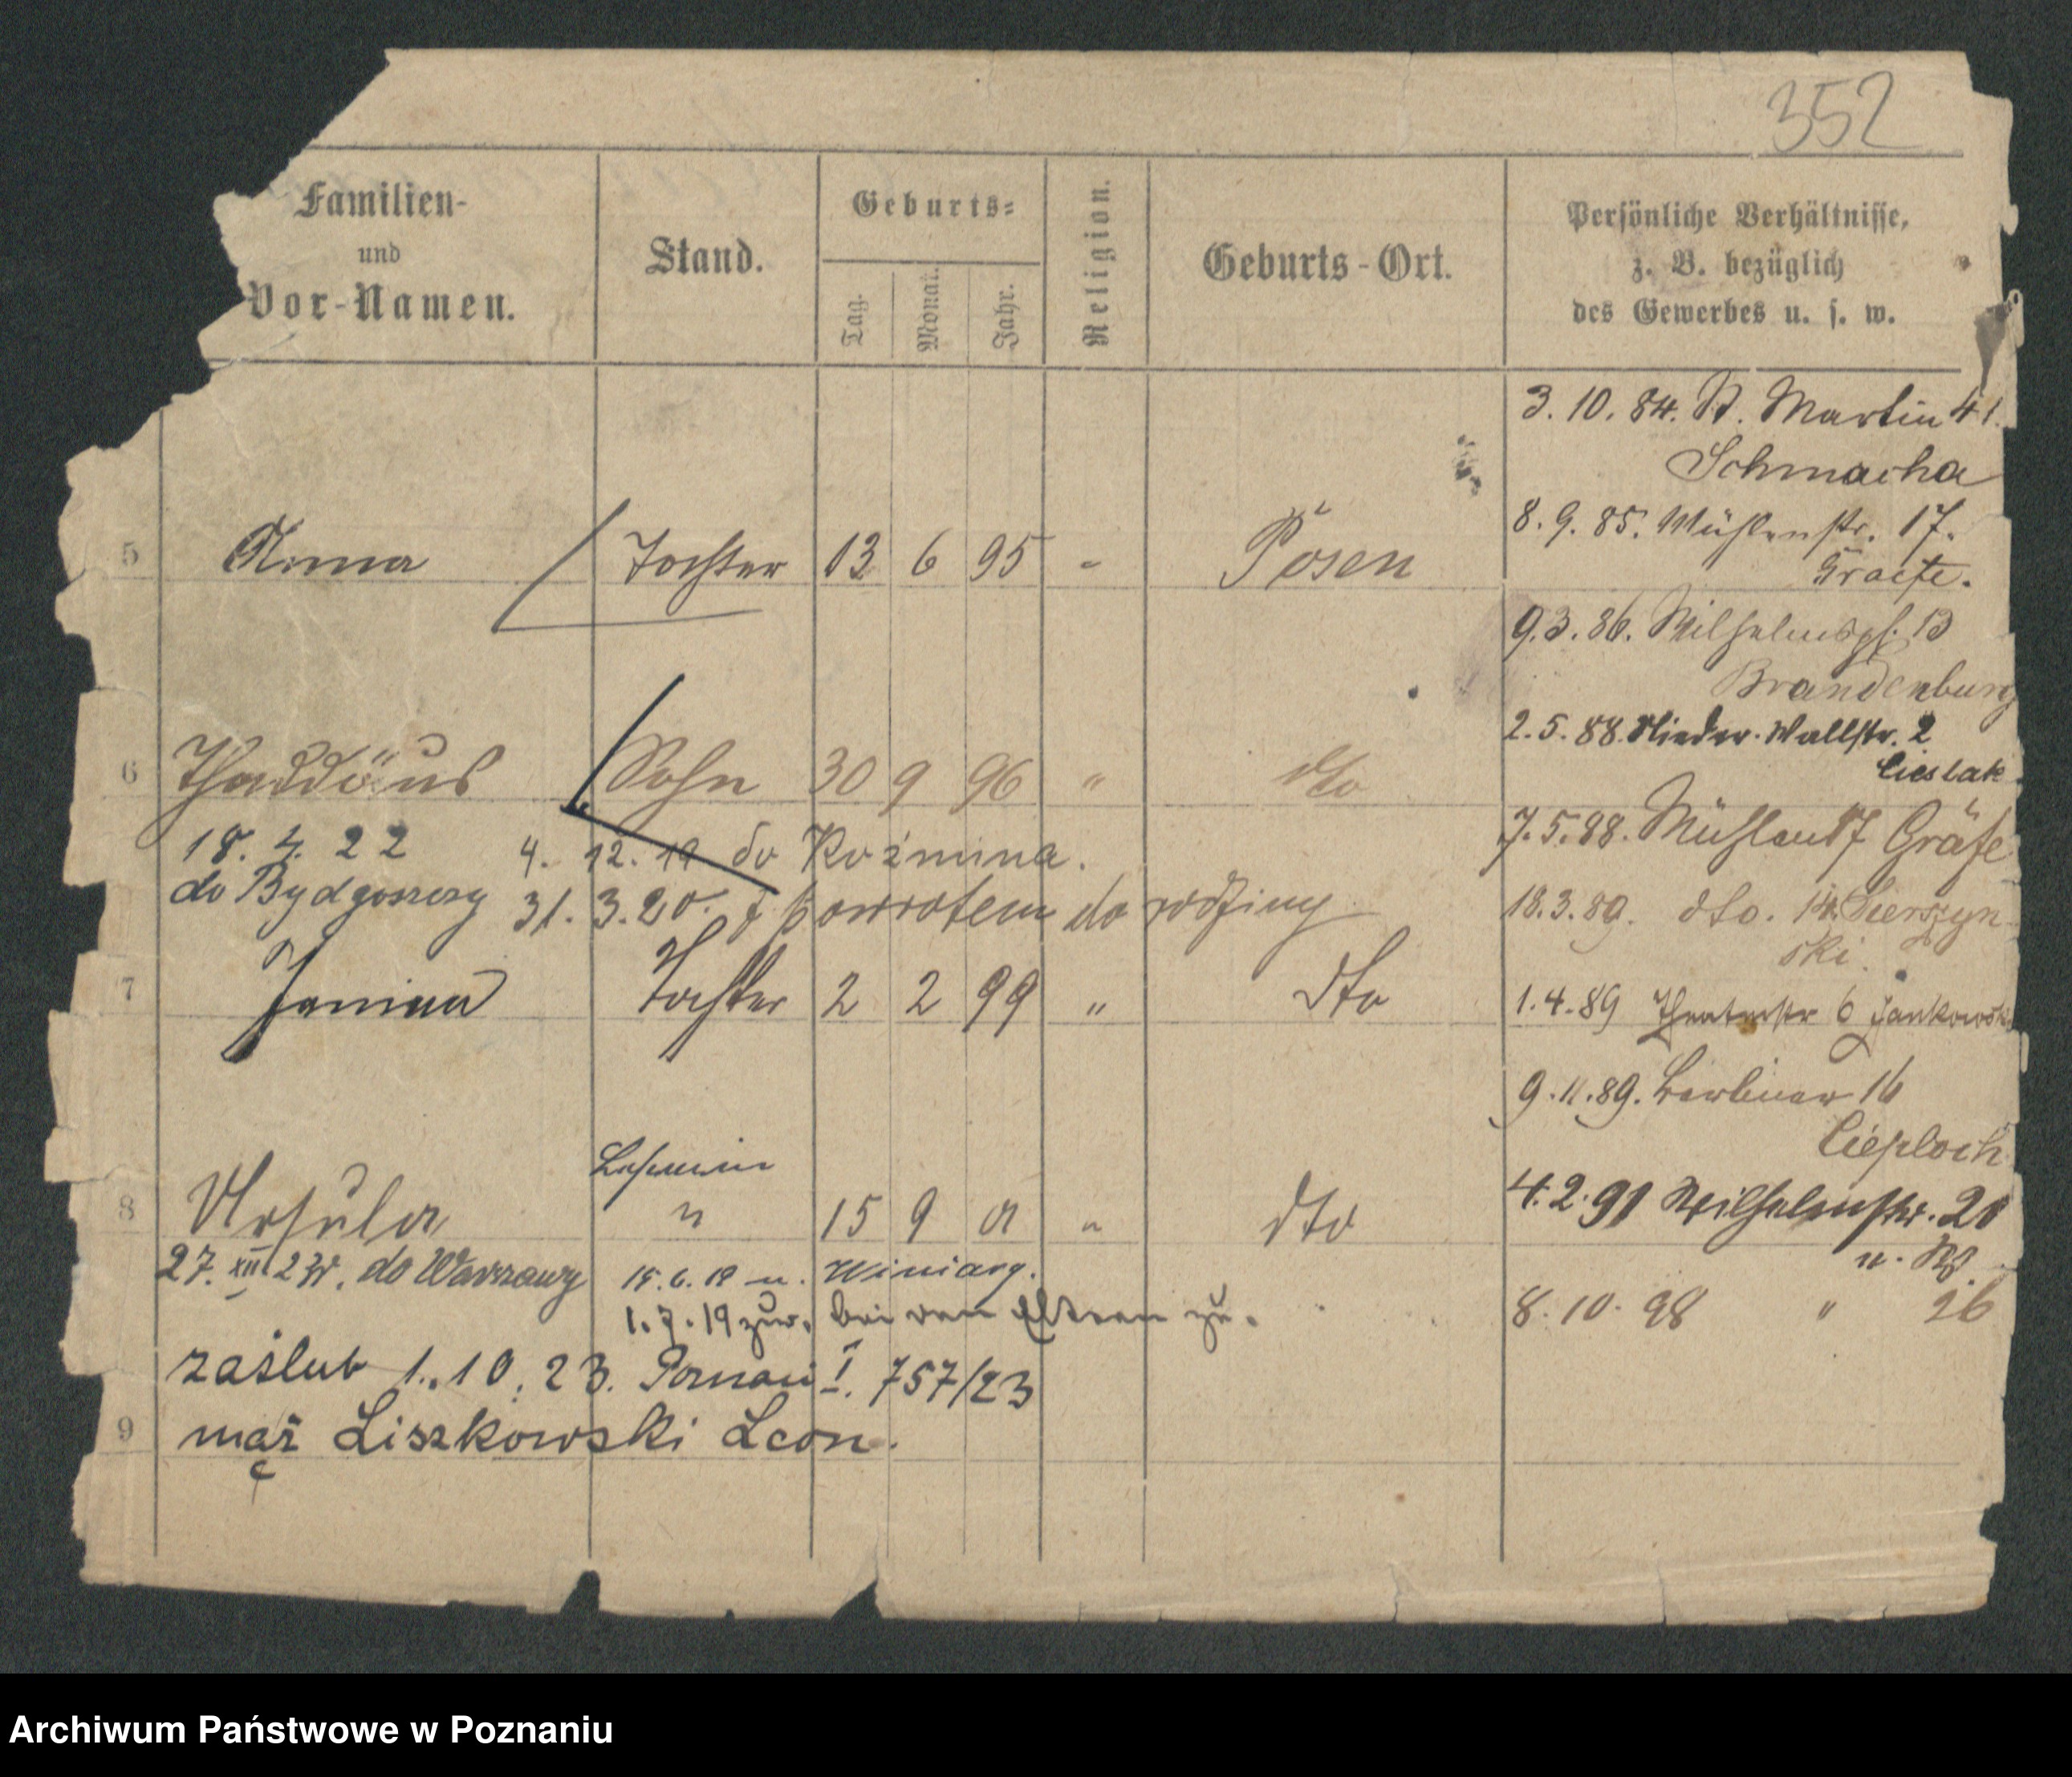 352
Familien-
und
Vor-Namen.
Stand.
Geburts-
Tag.
Monat.
Jahr.
Religion.
Geburts-Ort.
Persönliche Verhältnisse,
z. B. bezüglich
des Gewerbes u. s. w.
3. 10. 84. St. Martin 41.
Schmacha
8. 9. 85. Mühlenstr. 17.
Graefe.
5 Anna Tochter 13 6 95 - Posen
9. 3. 86. Wilhelmspl. 13
Brandenburg
2. 5. 88. Nieder-Wallstr. 2
Cieslak
6 Thaddäus Sohn 30 9 96 " dto
7. 5. 88. Mühlen 17 Gräfe
18. 4. 22 4. 12. 19 do Koźmina.
do Bydgoszczy 31. 3. 20. z powrotem do rodziny
18. 3. 89. dto. 14.
ski.
7 Janina Tochter 2 2 99 " dto
1. 4. 89 Theaterstr 6 Jankowski
9. 11. 89. Berliner 16
Cieploch
Lehrerin
4. 2. 91 Wilhelmstr. 20
8 Ursula " 15 9 01 " dto
27. XII 23r. do Warszawy 15. 6. 19 n. Winiary.
8. 10. 98 " 26
1. 7. 19 zur. bei den Eltern zu.
zaślub 1. 10. 23. Poznań I. 757/23
9 mąż Liszkowski Leon.
Archiwum Państwowe w Poznaniu